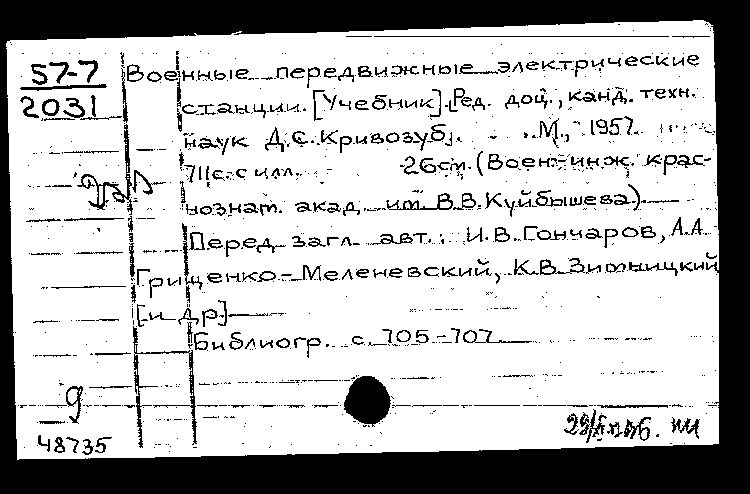 57-7
2031
Военные передвижные электрические
станции. [Учебник]. [Ред. доц., канд. техн.
наук Д.С. Кривозуб]. М., 1957
711 с. с илл. 26 см. (Воен-инж. крас-
нознам. акад. им. В.В. Куйбышева)
Перед загл. авт.: И.В. Гончаров, А.А.
Грищенко-Меленевский, К.В. Зимницкий
[и др.]
Библиогр. с. 705-707
9
48735